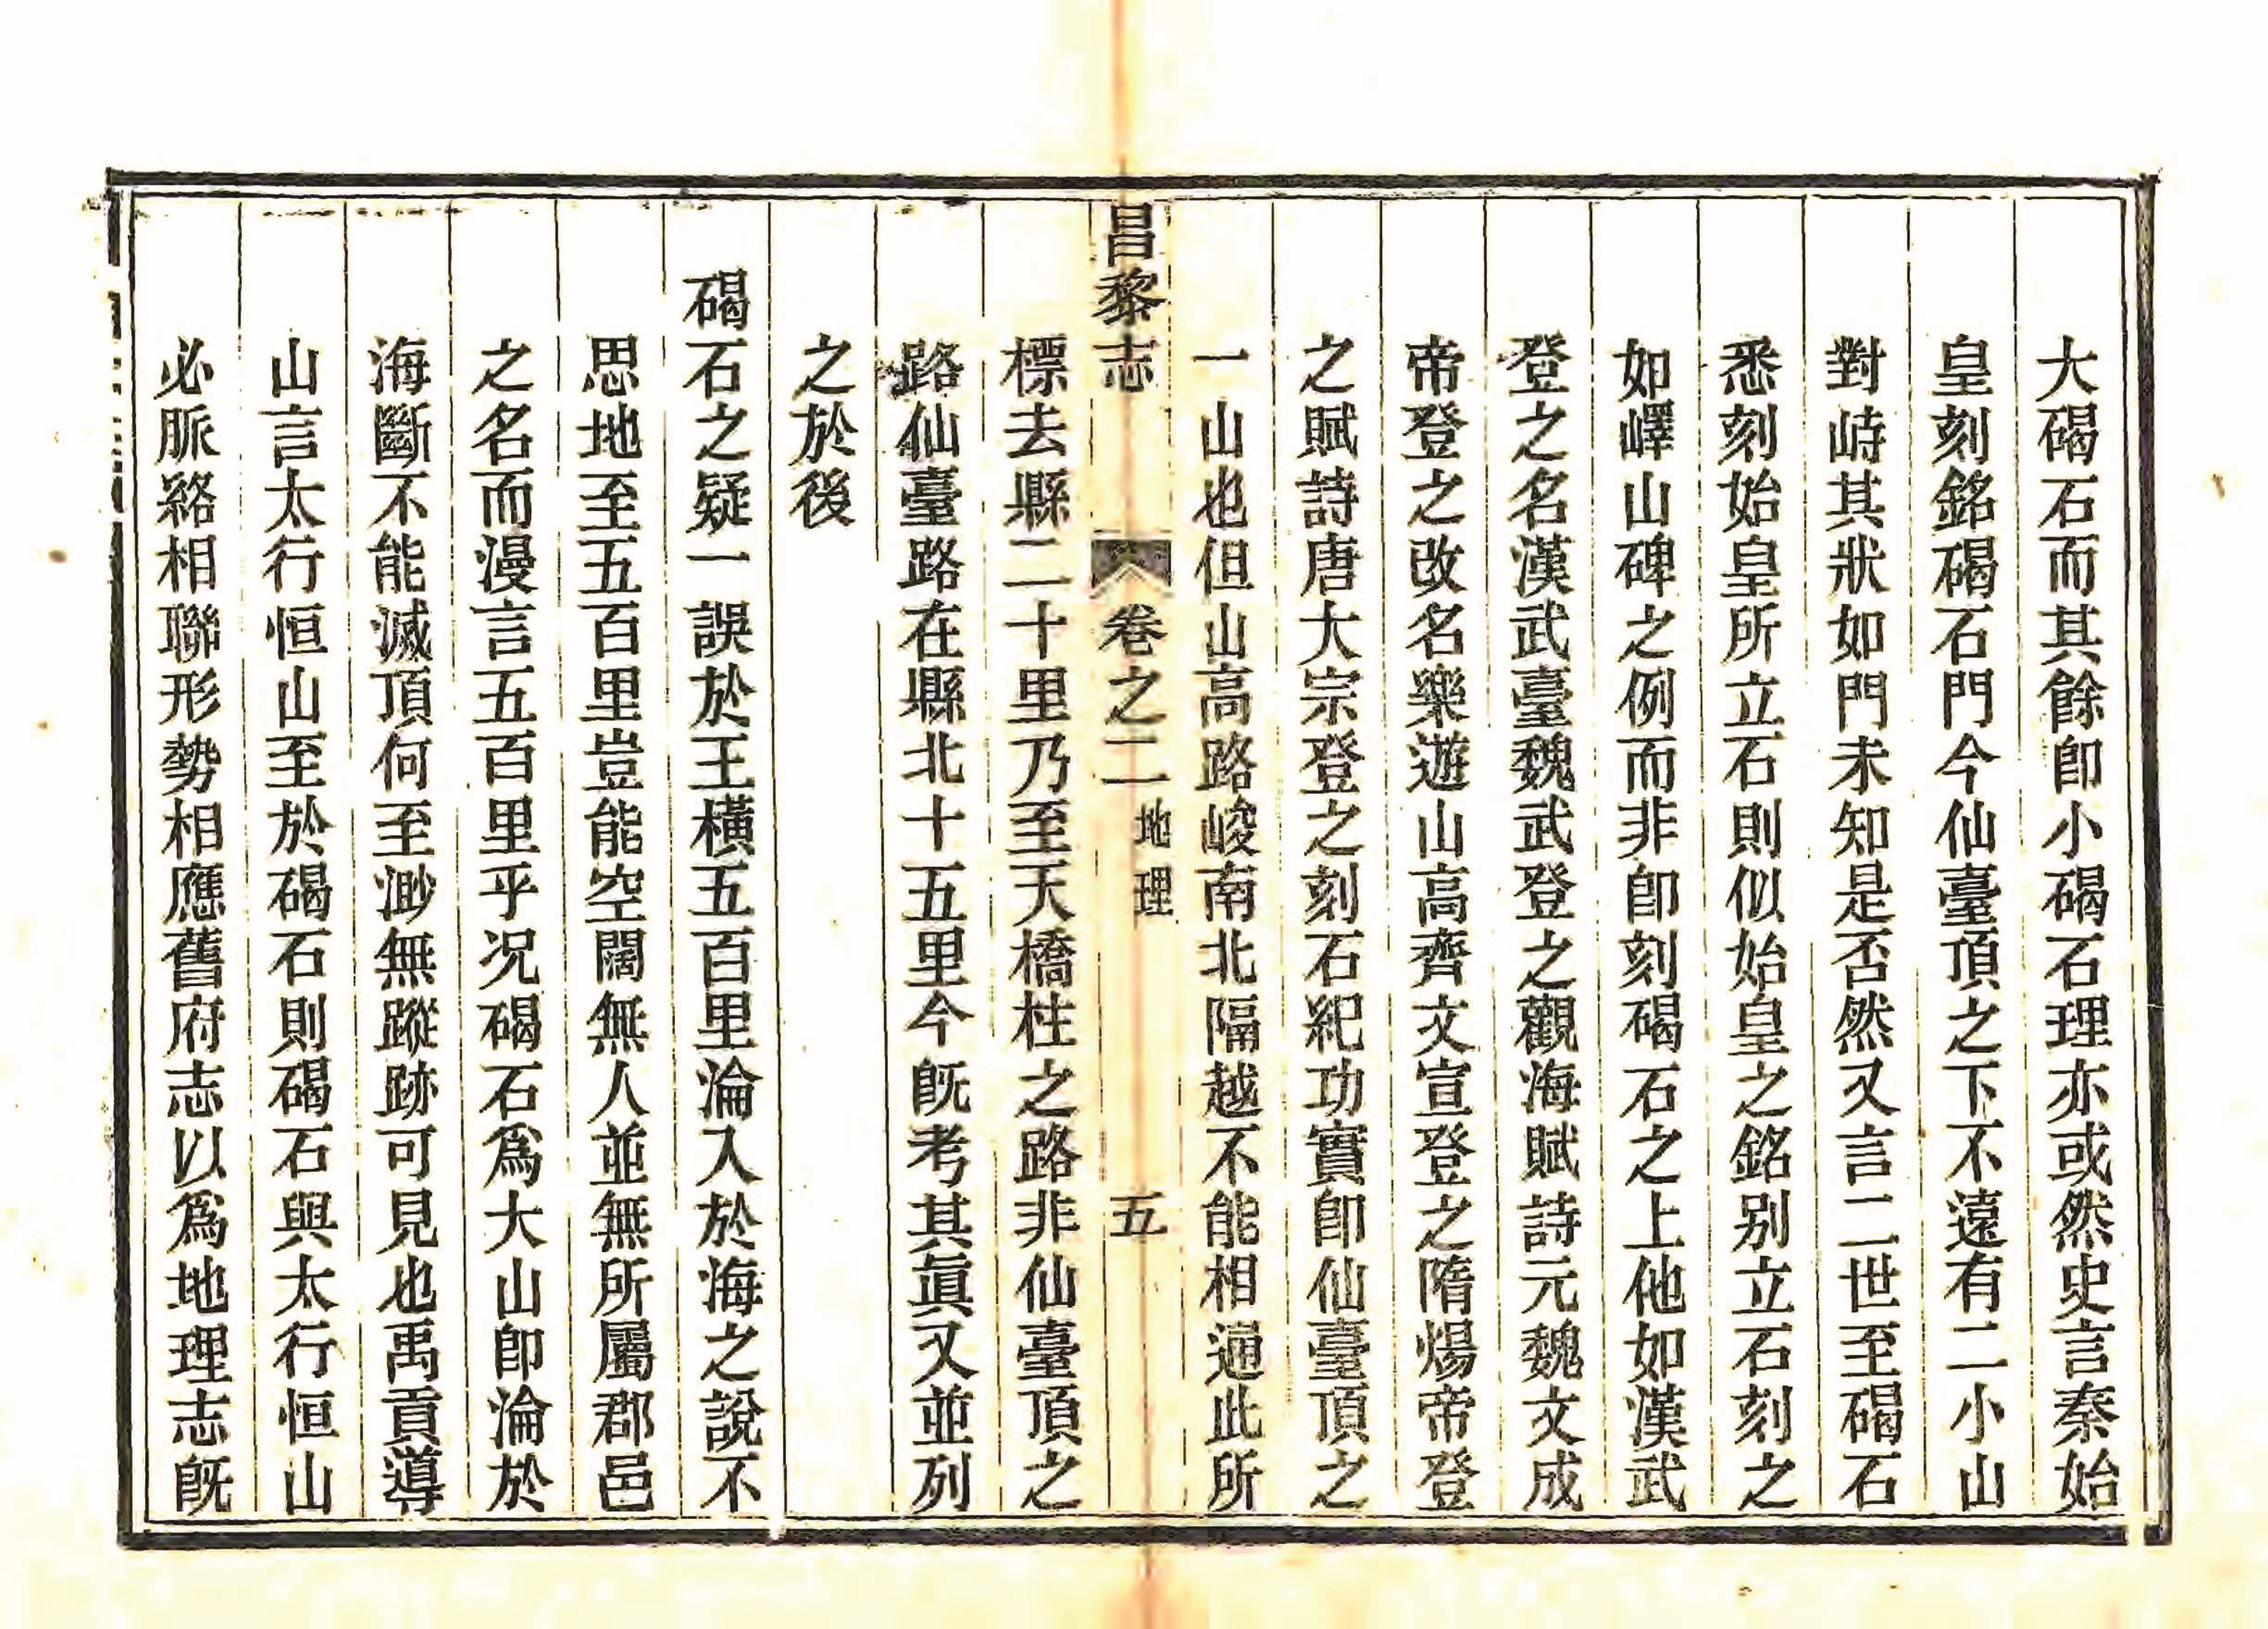 大碣石而其餘卽小碣石理亦或然史言秦始
皇刻銘碣石門今仙臺頂之下不遠有二小山
對峙其狀如門未知是否然又言二世至碣石
悉刻始皇所立石則似始皇之銘别立石刻之
如嶧山碑之例而非卽刻碣石之上他如漢武
登之名漢武臺魏武登之觀海賦詩元魏文成
帝登之改名樂遊山高齊文宣登之隋煬帝登
之賦詩唐太宗登之刻石紀功實卽仙臺頂之
一山也但山高路峻南北隔越不能相通此所
昌黎志 卷之二 地理 五
標去縣二十里乃至天橋柱之路非仙臺頂之
路仙臺路在縣北十五里今旣考其眞又並列
之於後
碣石之疑一誤於王橫五百里淪入於海之說不
思地至五百里豈能空闊無人並無所屬郡邑
之名而漫言五百里乎况碣石爲大山卽淪於
海斷不能滅頂何至渺無蹤跡可見也禹貢導
山言太行恒山至於碣石則碣石與太行恒山
必脈絡相聯形勢相應舊府志以爲地理志旣